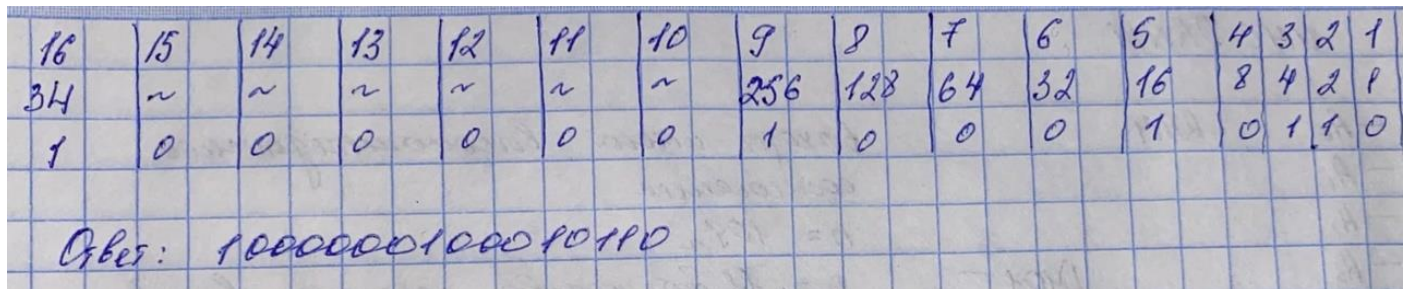 16 15 14 13 12 11 10 9 8 7 6 5 4 3 2 1
34 ~ ~ ~ ~ ~ ~ 256 128 64 32 16 8 4 2 1
1 0 0 0 0 0 0 1 0 0 0 1 0 1 1 0
Ответ: 1000000100010110